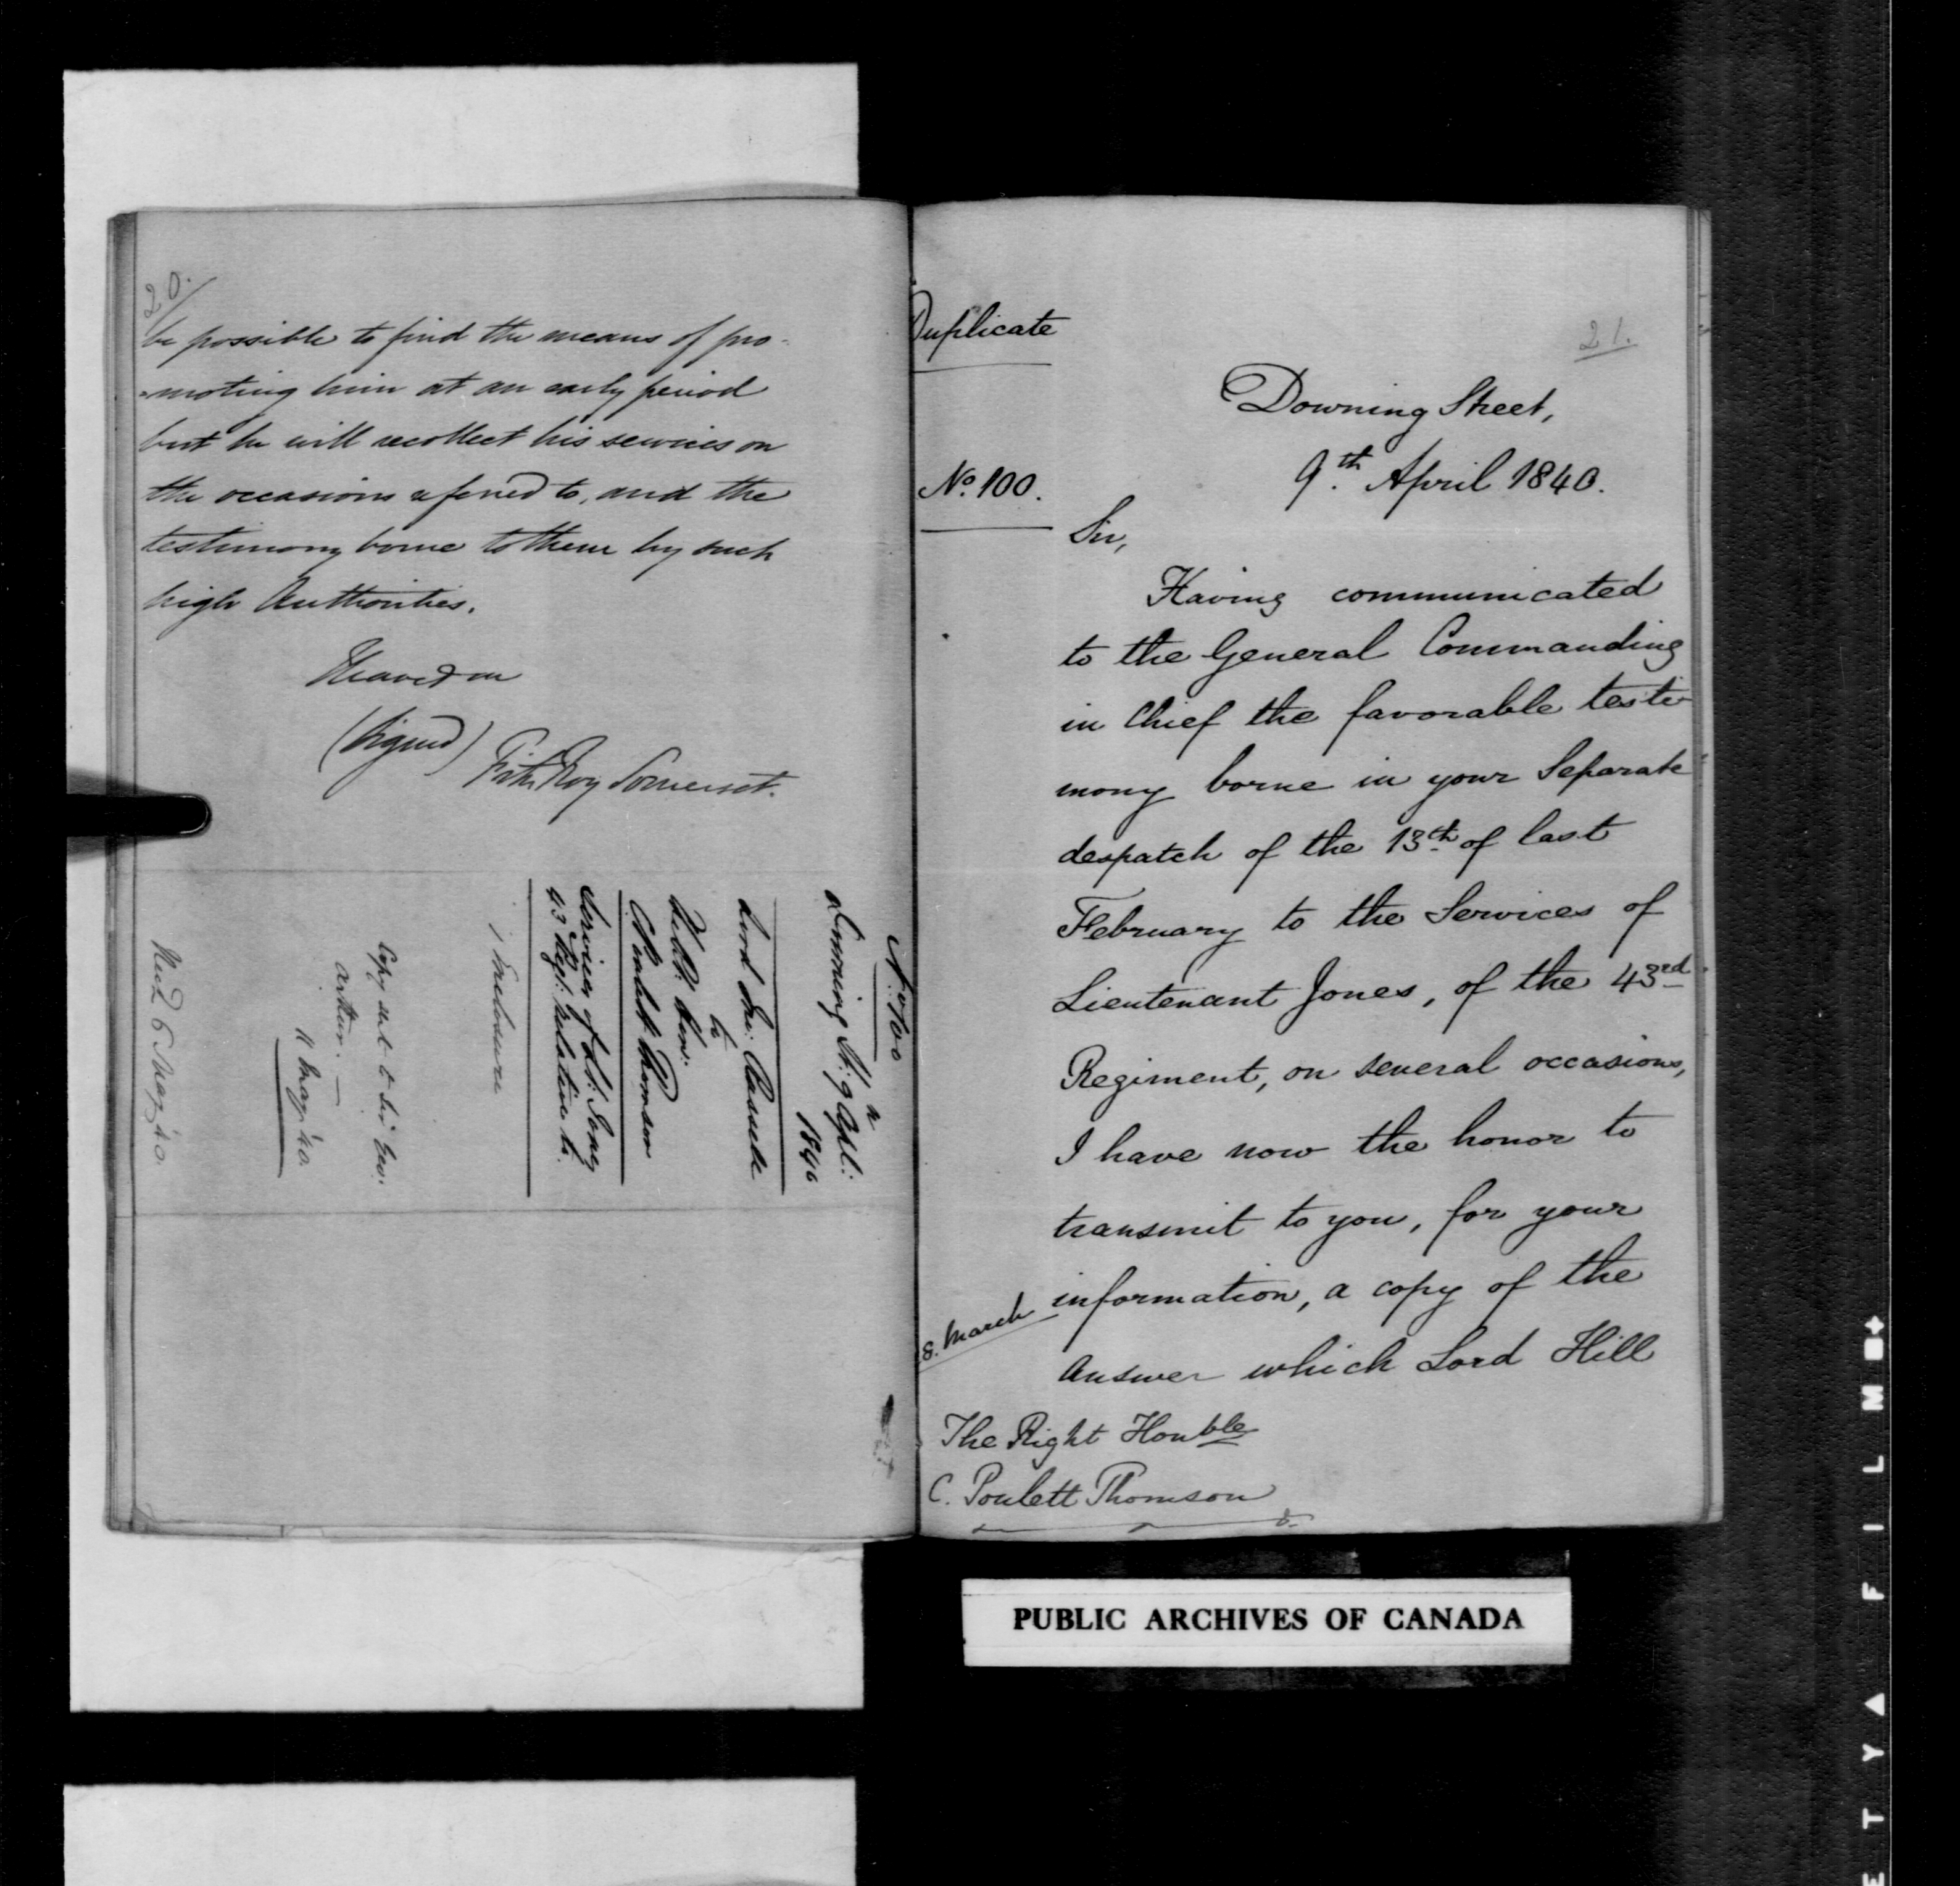 20.
be possible to find the means of pro-
-moting him at an early period
but he will recollect his services on
the occasions referred to, and the
testimony borne to them by such
high Authorities.
I have &c
(Signed) FitzRoy Somerset.
No. 100
Downing St: 9 Apl:
1840
Lord Jno: Russell
to
Rt. Hon:
C. Poulett Thomson
Services of Lt: Jones
43 Regt: relative to.
1 Enclosure
Copy sent to Sir Geo:
Arthur. —
11 May '40
Recd 6 May '40.
Duplicate
21.
Downing Street,
9th April 1840.
No. 100.
Sir,
Having communicated
to the General Commanding
in Chief the favorable testi-
mony borne in your Separate
despatch of the 13th of last
February to the Services of
Lieutenant Jones, of the 43rd
Regiment, on several occasions,
I have now the honor to
transmit to you, for your
information, a copy of the
8. March
Answer which Lord Hill
The Right Honble
C. Poulett Thomson
PUBLIC ARCHIVES OF CANADA
E T Y ▲ F I L M